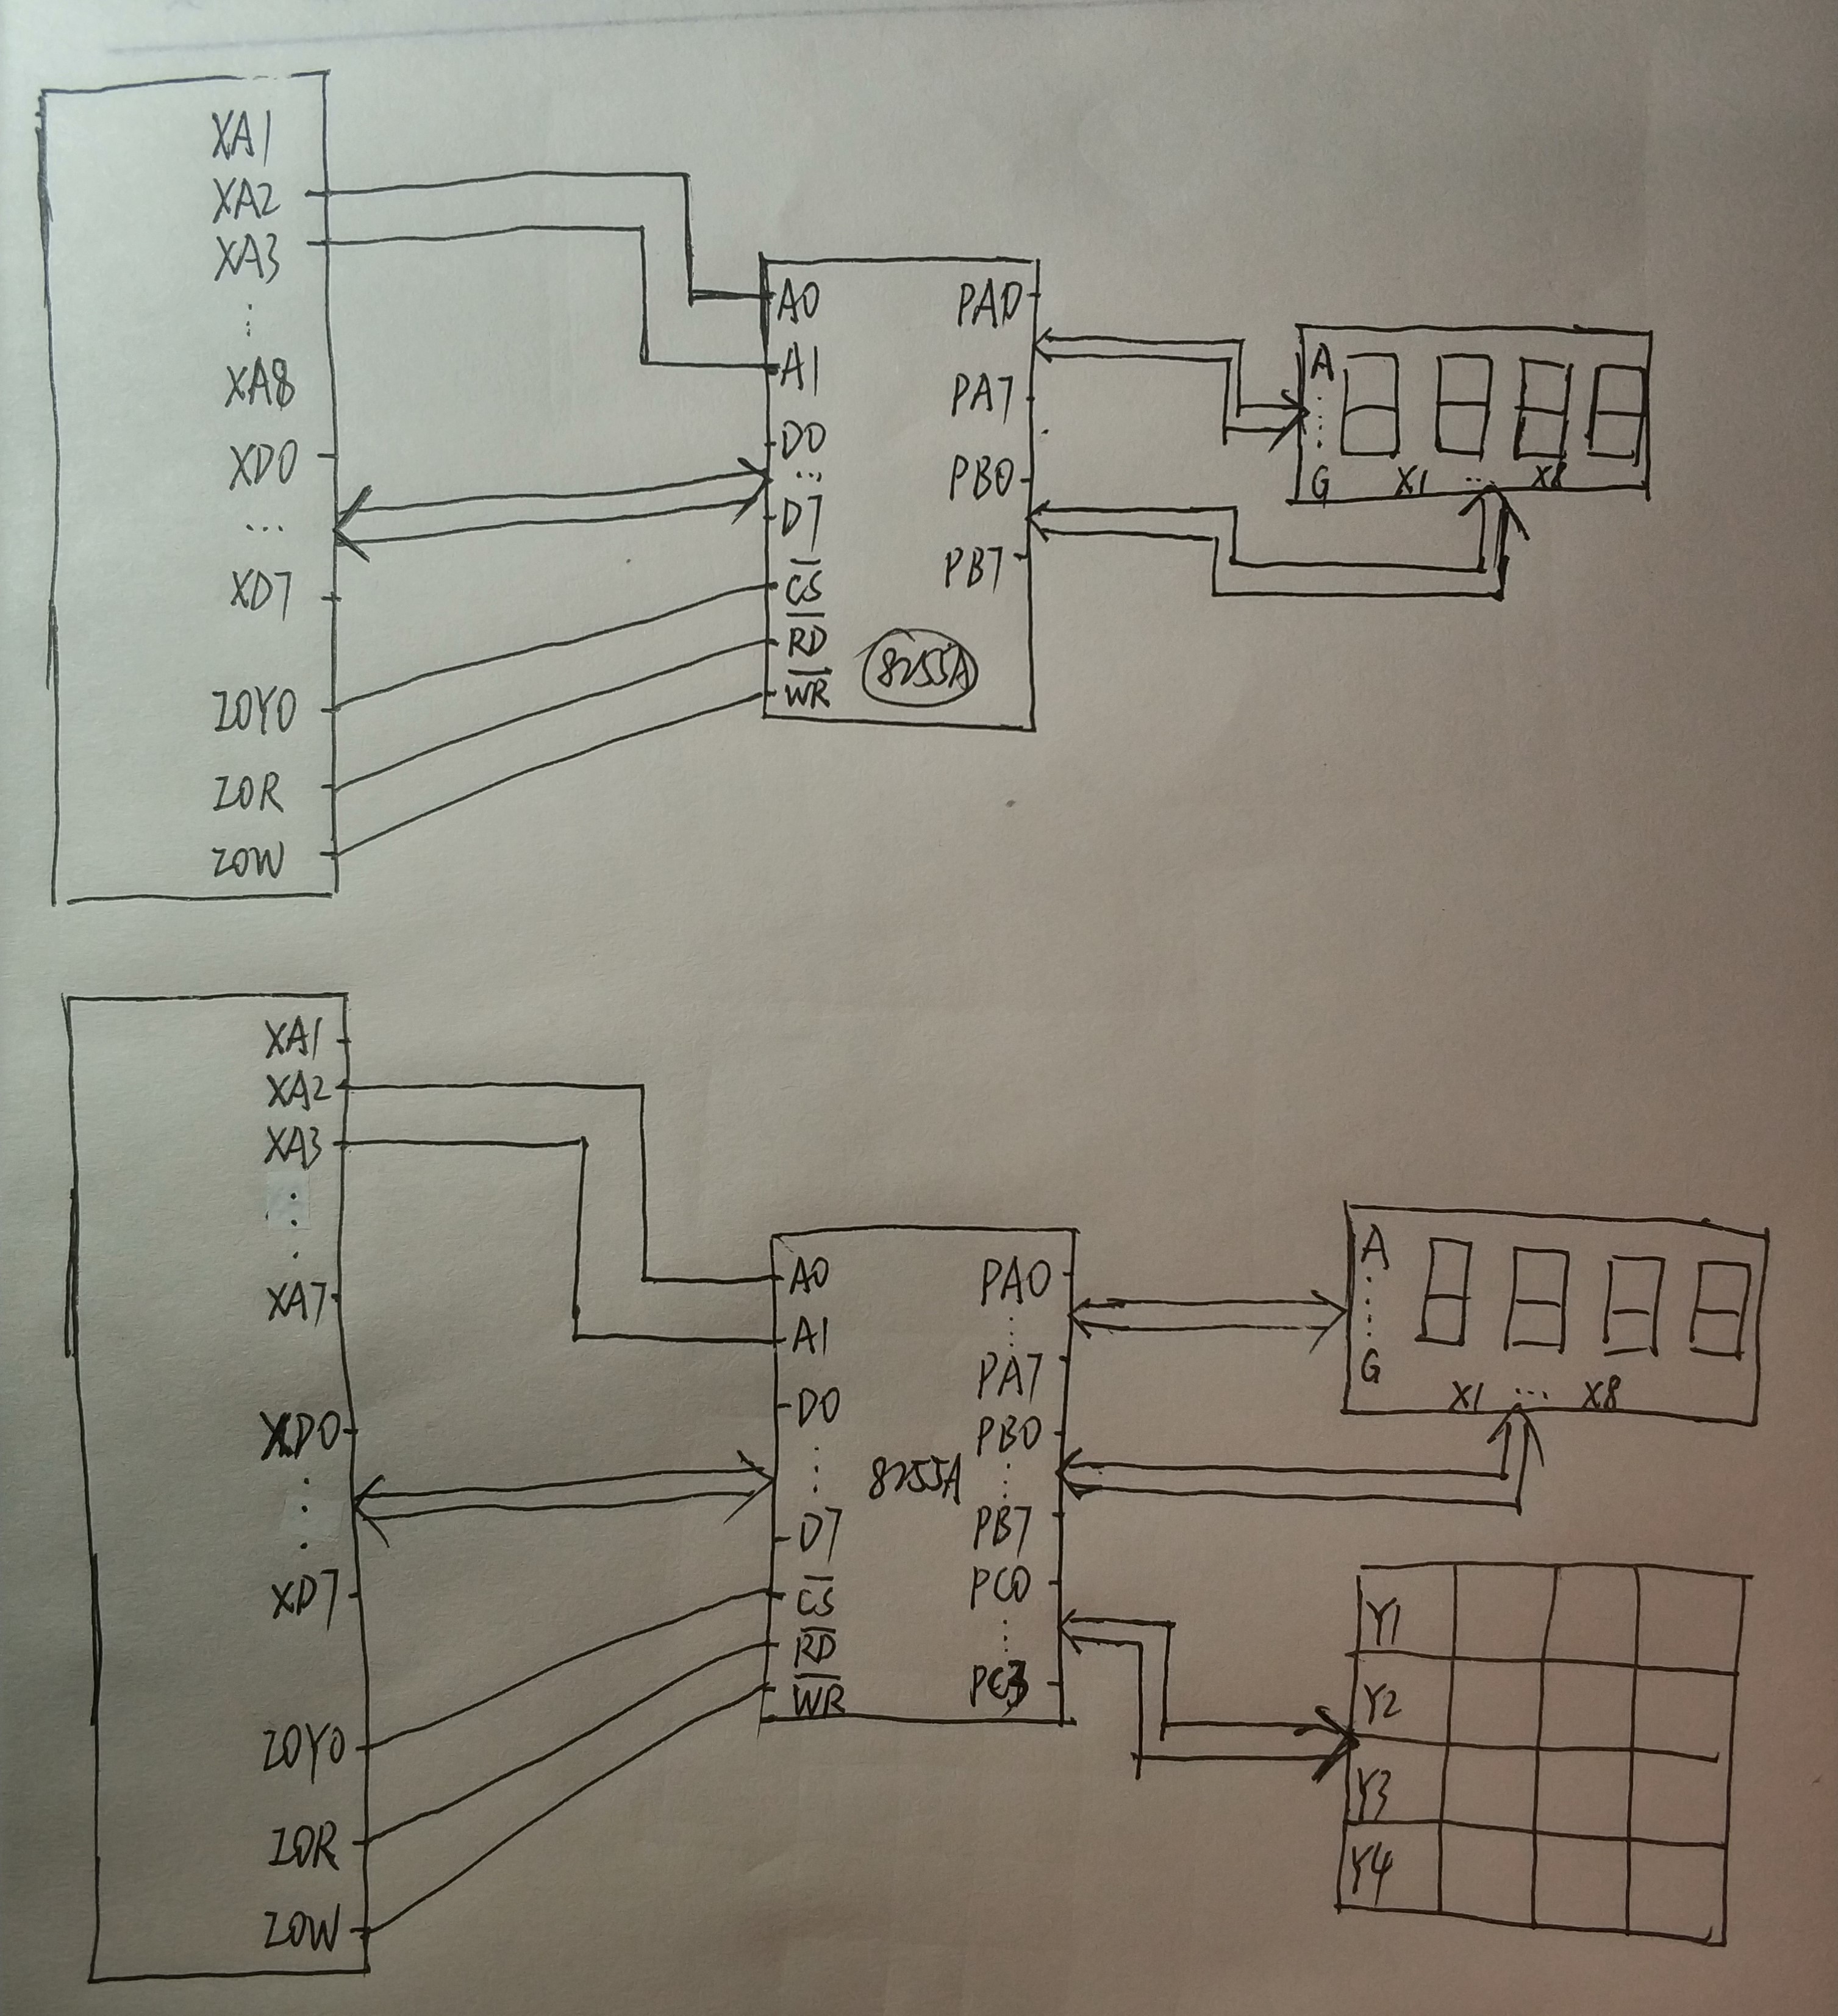 XA1
XA2
XA3
⋮
XA8
XD0
...
XD7
IOY0
IOR
IOW
A0
A1
D0
...
D7
C̅S̅
R̅D̅
W̅R̅
PA0
PA7
PB0
PB7
8255A
A
⋮
G
X1 ... X8
XA1
XA2
XA3
⋮
XA7
XD0
⋮
XD7
IOY0
IOR
IOW
A0
A1
D0
⋮
D7
C̅S̅
R̅D̅
W̅R̅
8255A
PA0
⋮
PA7
PB0
⋮
PB7
PC0
⋮
PC3
A
⋮
G
X1 ... X8
Y1
Y2
Y3
Y4